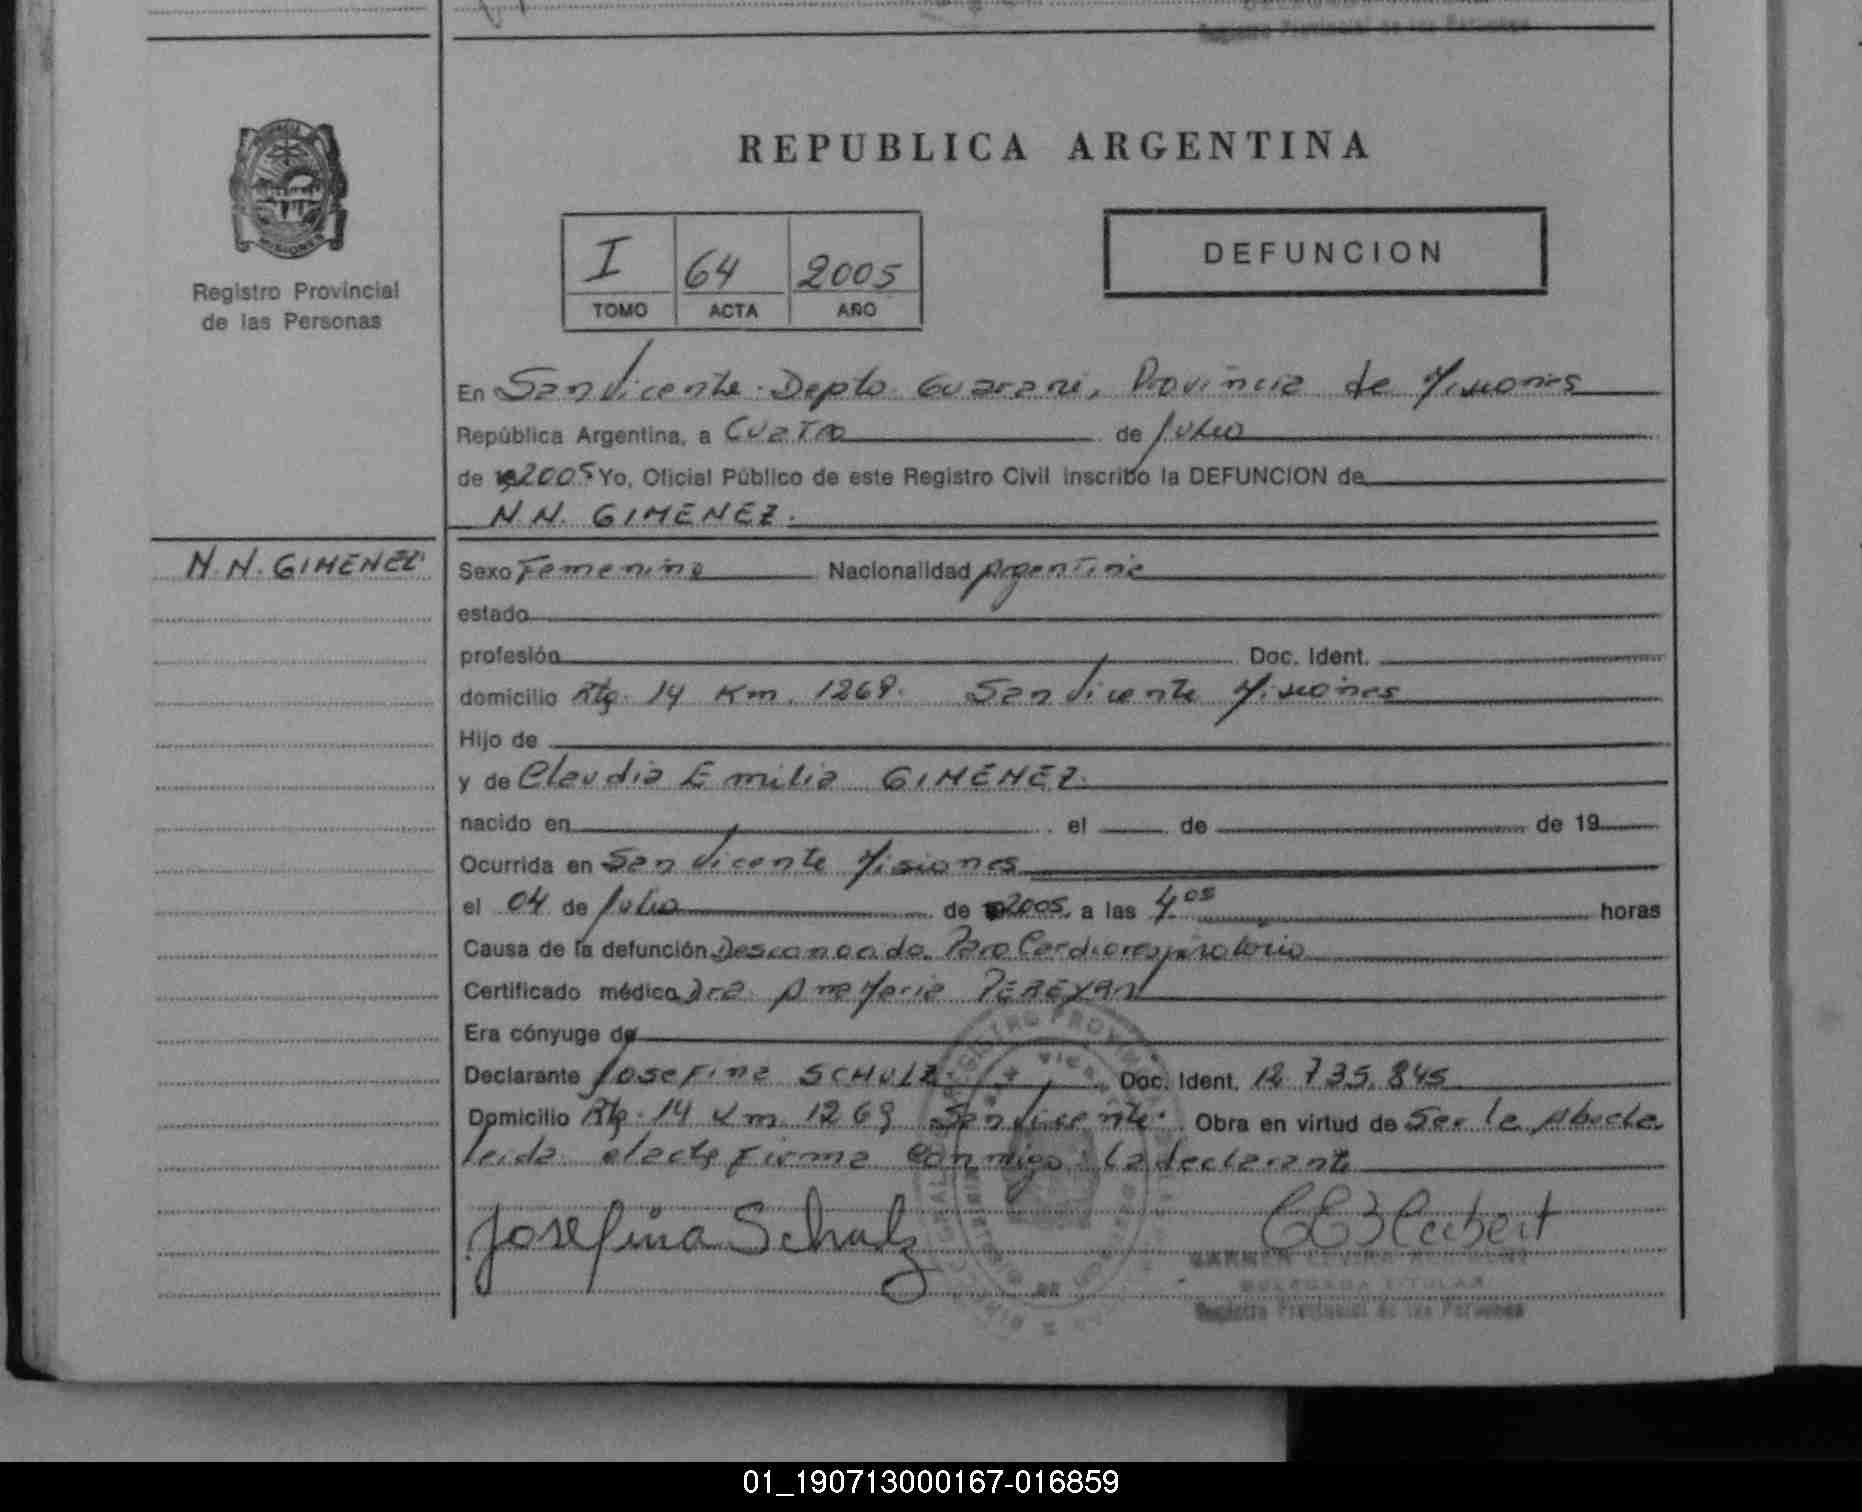 Registro Provincial de las Personas
REPUBLICA ARGENTINA
MISIONES
Registro Provincial
de las Personas
I 64 2005
TOMO ACTA AÑO
DEFUNCION
En San Vicente Depto Guarani, Provincia de Misiones
República Argentina, a Cuatro de Julio
de 2005 Yo, Oficial Público de este Registro Civil inscribo la DEFUNCION de
N.N. GIMENEZ.
N.N. GIMENEZ
Sexo Femenino Nacionalidad Argentina
estado
profesión Doc. Ident.
domicilio Rta. 14 Km. 1269. San Vicente Misiones
Hijo de
y de Claudia Emilia GIMENEZ.
nacido en el de de 19
Ocurrida en San Vicente Misiones
el 04 de Julio de 2005, a las 4.05 horas
Causa de la defunción Desconocida. Paro Cardiorespiratorio
Certificado médico Dra. Ana Maria PEREYRA
Era cónyuge de
Declarante Josefina SCHULZ. Doc. Ident. 12.735.845
Domicilio Rta. 14 Km 1269 San Vicente. Obra en virtud de Ser la Abuela
leida el acta firma conmigo la declarante
Josefina Schulz
DELEGADA TITULAR
Registro Provincial de las Personas
01_190713000167-016859